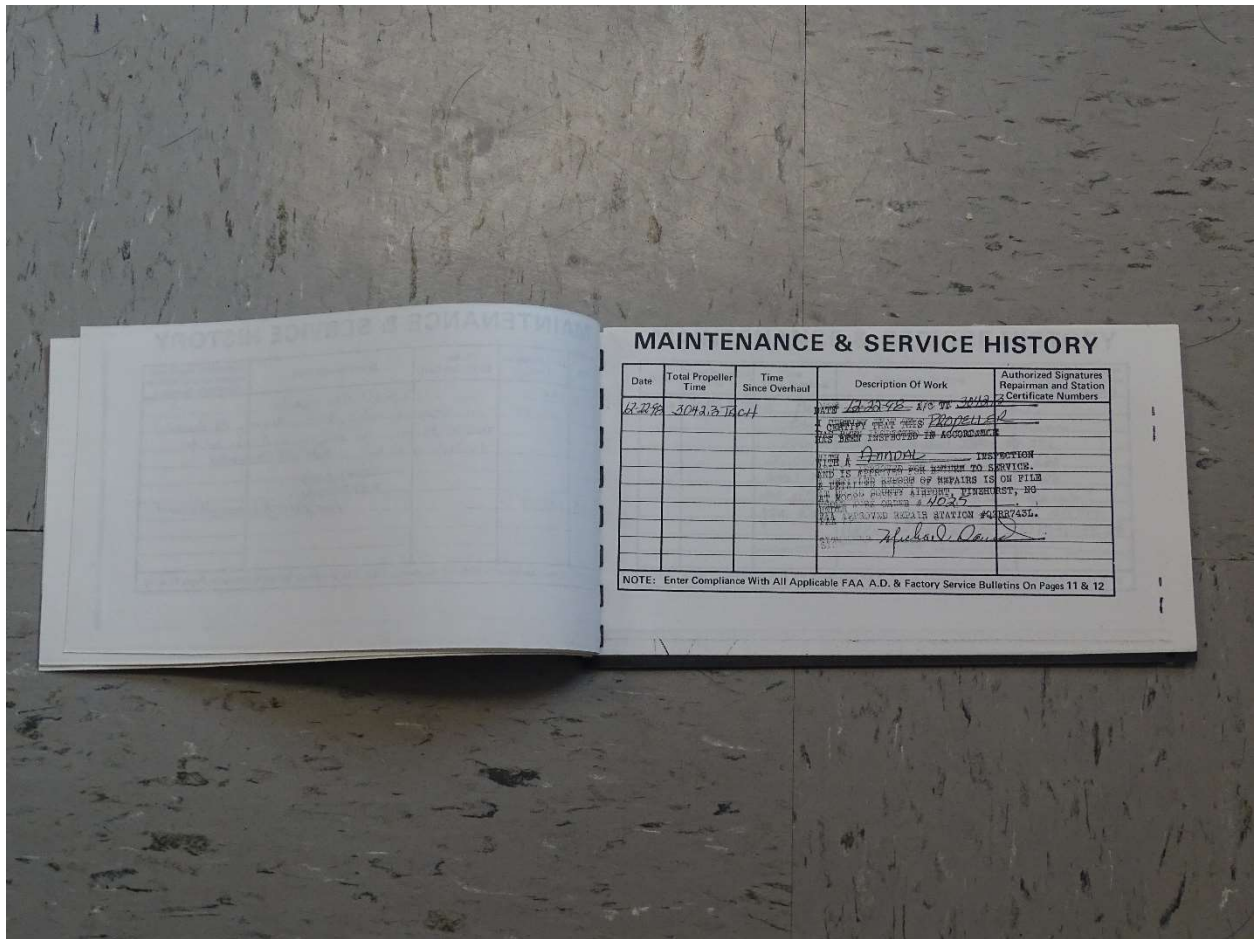 MAINTENANCE & SERVICE HISTORY
Date
Total Propeller
Time
Time
Since Overhaul
Description Of Work
Authorized Signatures
Repairman and Station
Certificate Numbers
12-22-98 3042.3 TACH
DATE 12-22-98 A/C TT 3042.3
I CERTIFY THAT THIS PROPELLER
HAS BEEN INSPECTED IN ACCORDANCE
WITH A ANNUAL INSPECTION
AND IS APPROVED FOR RETURN TO SERVICE.
A DETAILED RECORD OF REPAIRS IS ON FILE
AT MOORE COUNTY AIRPORT, PINEHURST, NC
UNDER WORK ORDER # 4025
FAA APPROVED REPAIR STATION
Michael
NOTE: Enter Compliance With All Applicable FAA A.D. & Factory Service Bulletins On Pages 11 & 12
MAINTENANCE & SERVICE HISTORY